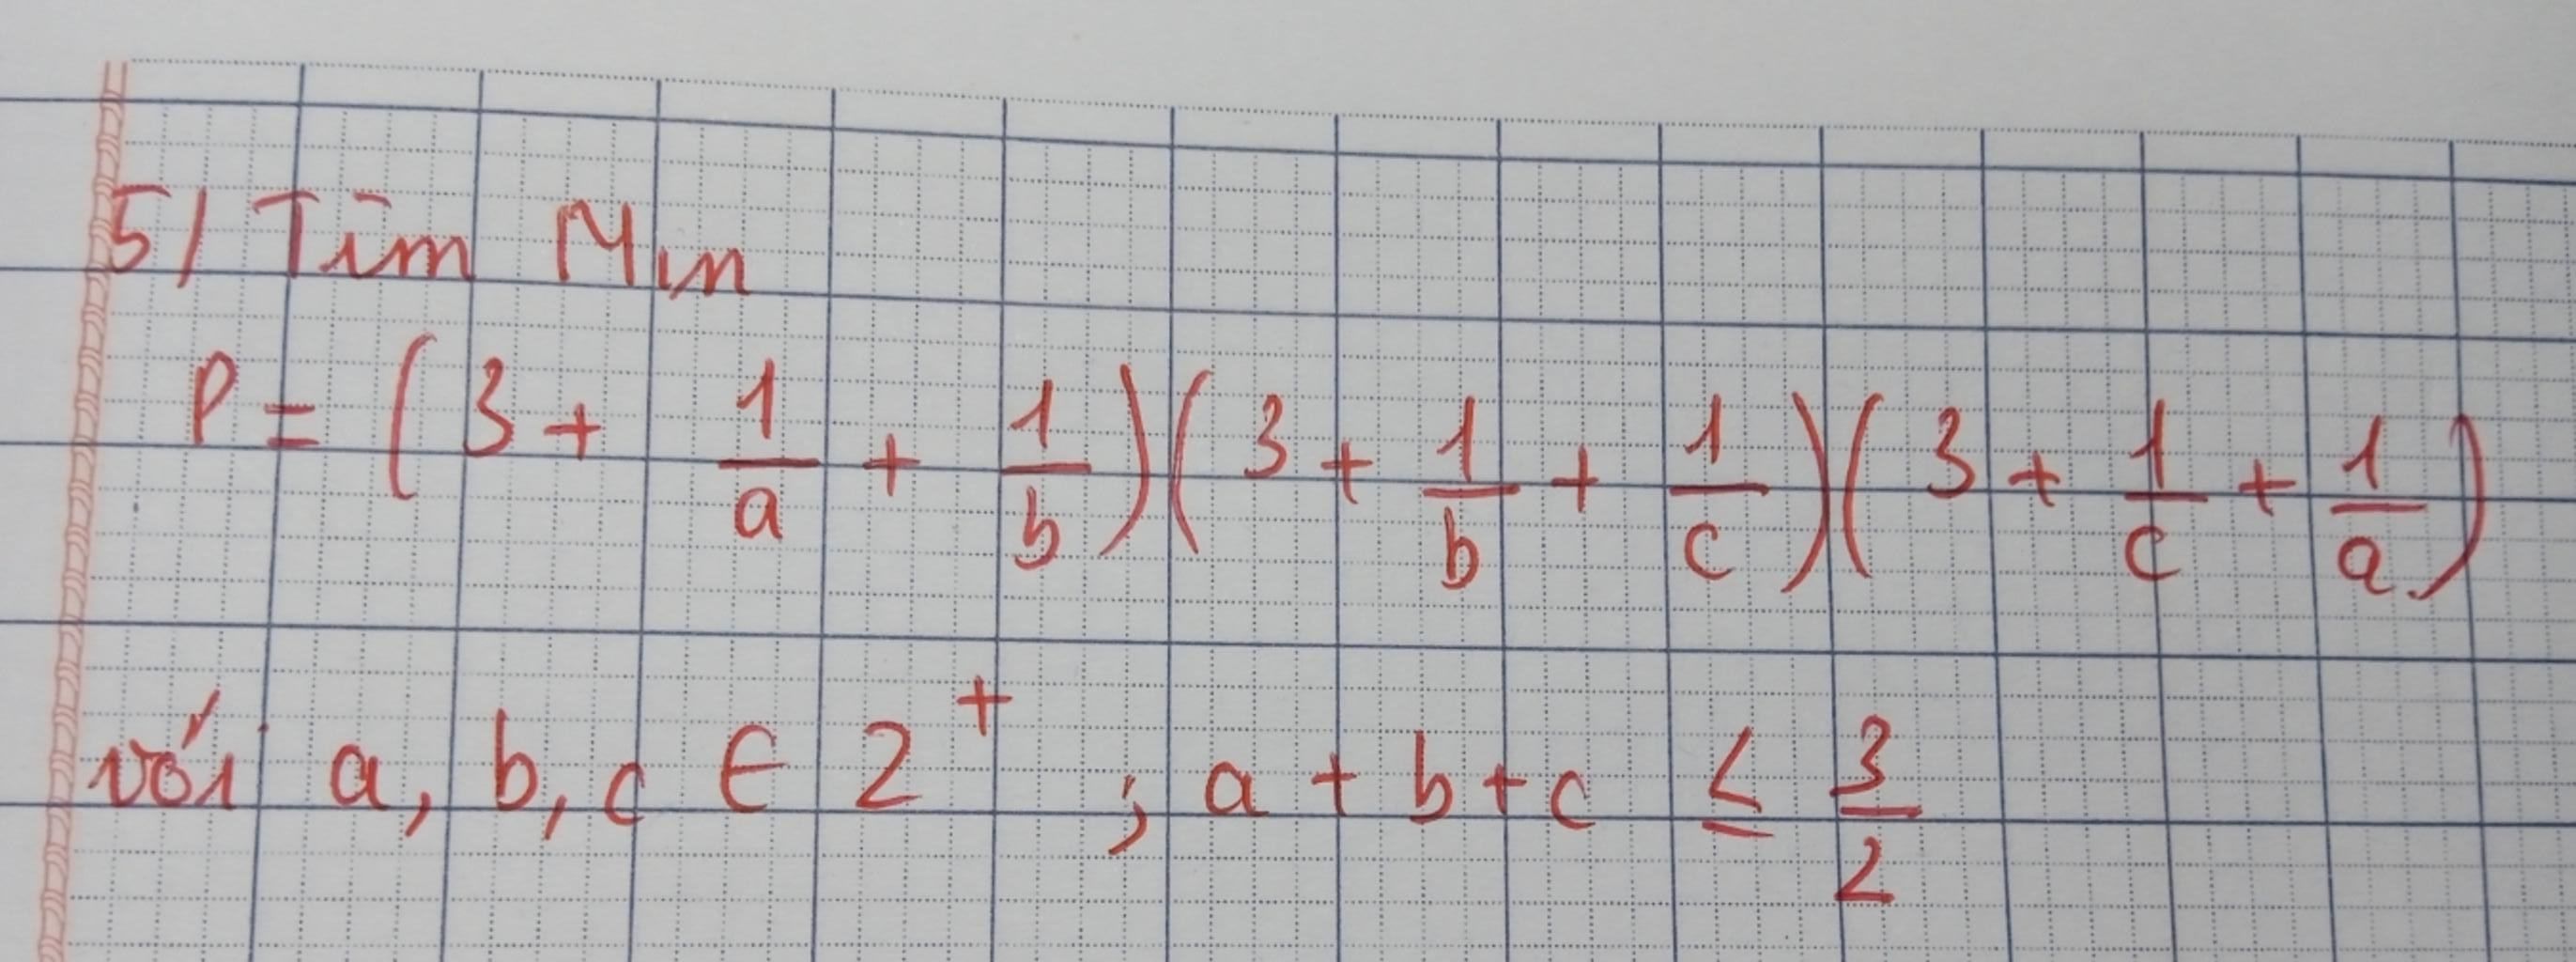 5/ Tìm Min
P = (3 + 1/a + 1/b)(3 + 1/b + 1/c)(3 + 1/c + 1/a)
với a, b, c ∈ Z⁺ ; a + b + c ≤ 3/2